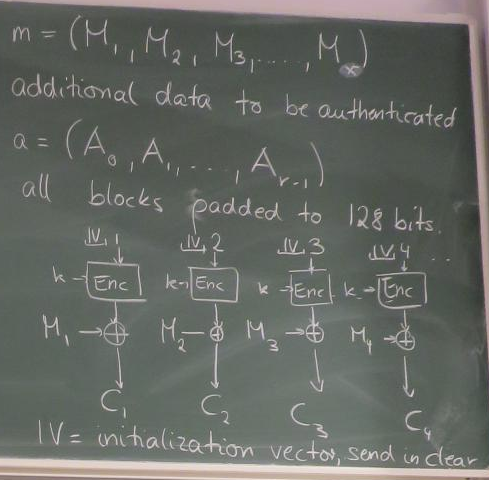 m = (M₁, M₂, M₃, ....., Mₓ)
additional data to be authenticated
a = (A₀, A₁, ..., Aᵣ₋₁)
all blocks padded to 128 bits.
IV, 1 IV, 2 IV, 3 IV, 4 ..
k → Enc k → Enc k → Enc k → Enc
M₁ → ⊕ M₂ → ⊕ M₃ → ⊕ M₄ → ⊕
C₁ C₂ C₃ C₄
IV = initialization vector, send in clear